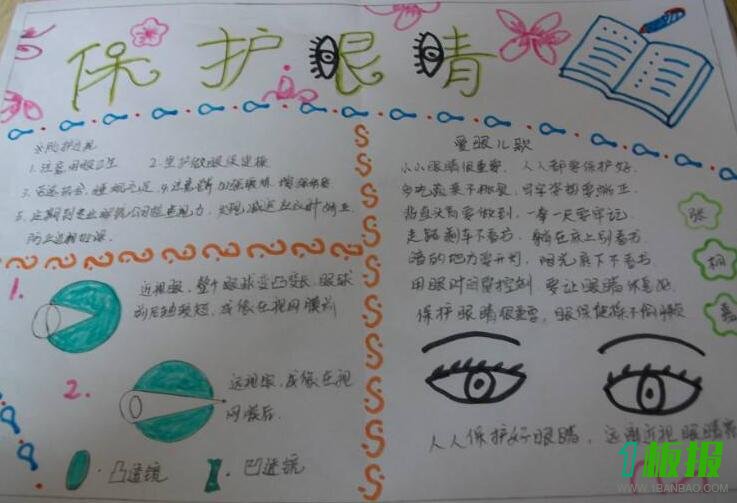 保护眼睛
预防近视
1.注意用眼卫生 2.坚持做眼保健操
3.合适 睡眠充足 4.注意 加强锻炼 增强体质
5.定期到 检查视力，发现减退应及时矫正
防止近视加深.
1. 近视眼，整个眼球变凸变长，眼球
前后 ，成像在视网膜前
2. 远视眼，成像在视
网膜后.
凸透镜 凹透镜
爱眼儿歌
小小眼睛很重要，人人都要保护好.
多吃蔬果不挑食，写字姿势要端正.
背直头高要做到，一拳一尺要牢记.
走路乘车不看书，躺在床上别看书.
暗的地方要开灯，阳光底下不看书
用眼时间要控制 要让眼睛休息好.
保护眼睛很重要，眼保健操不可
张
桐
嘉
人人保护好眼睛，远离近视眼睛亮
1板报
WWW.1BANBAO.COM